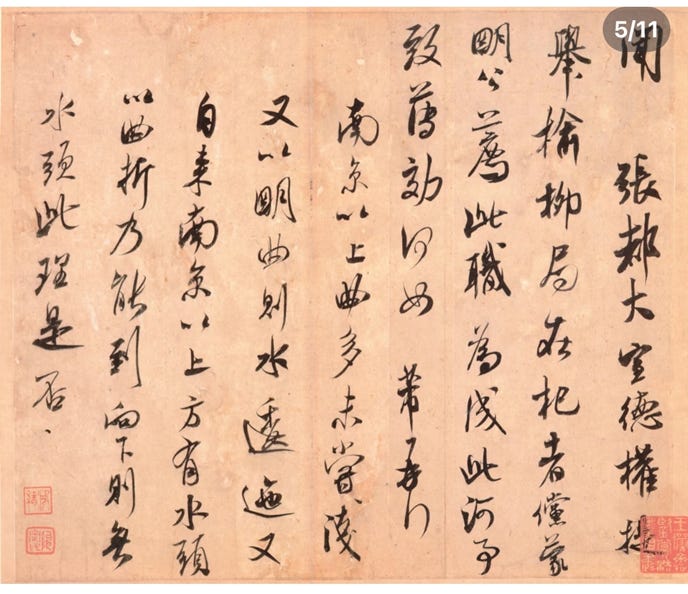 5/11
聞 張都大宣德權提
舉榆柳局在杞者儻蒙
明公薦此職為成此河事
致薄効何如 芾再行
南京以上曲多未嘗淺
又以明曲則水逶迤又
自来南京以上方有水頭
以曲折乃能到向下則無
水頭此理是否